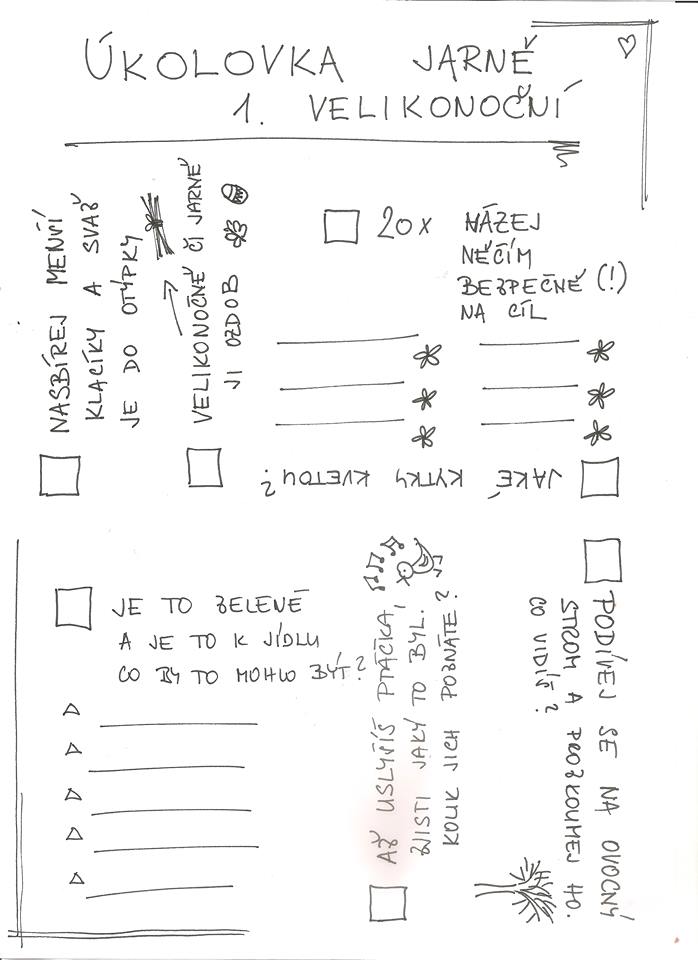 ÚKOLOVKA JARNĚ
1. VELIKONOČNÍ
NASBÍREJ MENŠÍ
KLACÍKY A SVAŽ
JE DO OTÝPKY
VELIKONOČNĚ ČI JARNĚ
JI OZDOB
20x HÁZEJ
NĚČÍM
BEZPEČNĚ (!)
NA CÍL
JAKÉ KYTKY KVETOU?
JE TO ZELENÉ
A JE TO K JÍDLU
CO BY TO MOHLO BÝT?
AŽ USLYŠÍŠ PTÁČKA,
ZJISTI JAKÝ TO BYL.
KOLIK JICH POZNÁTE?
PODÍVEJ SE NA OVOCNÝ
STROM A PROZKOUMEJ HO.
CO VIDÍŠ?